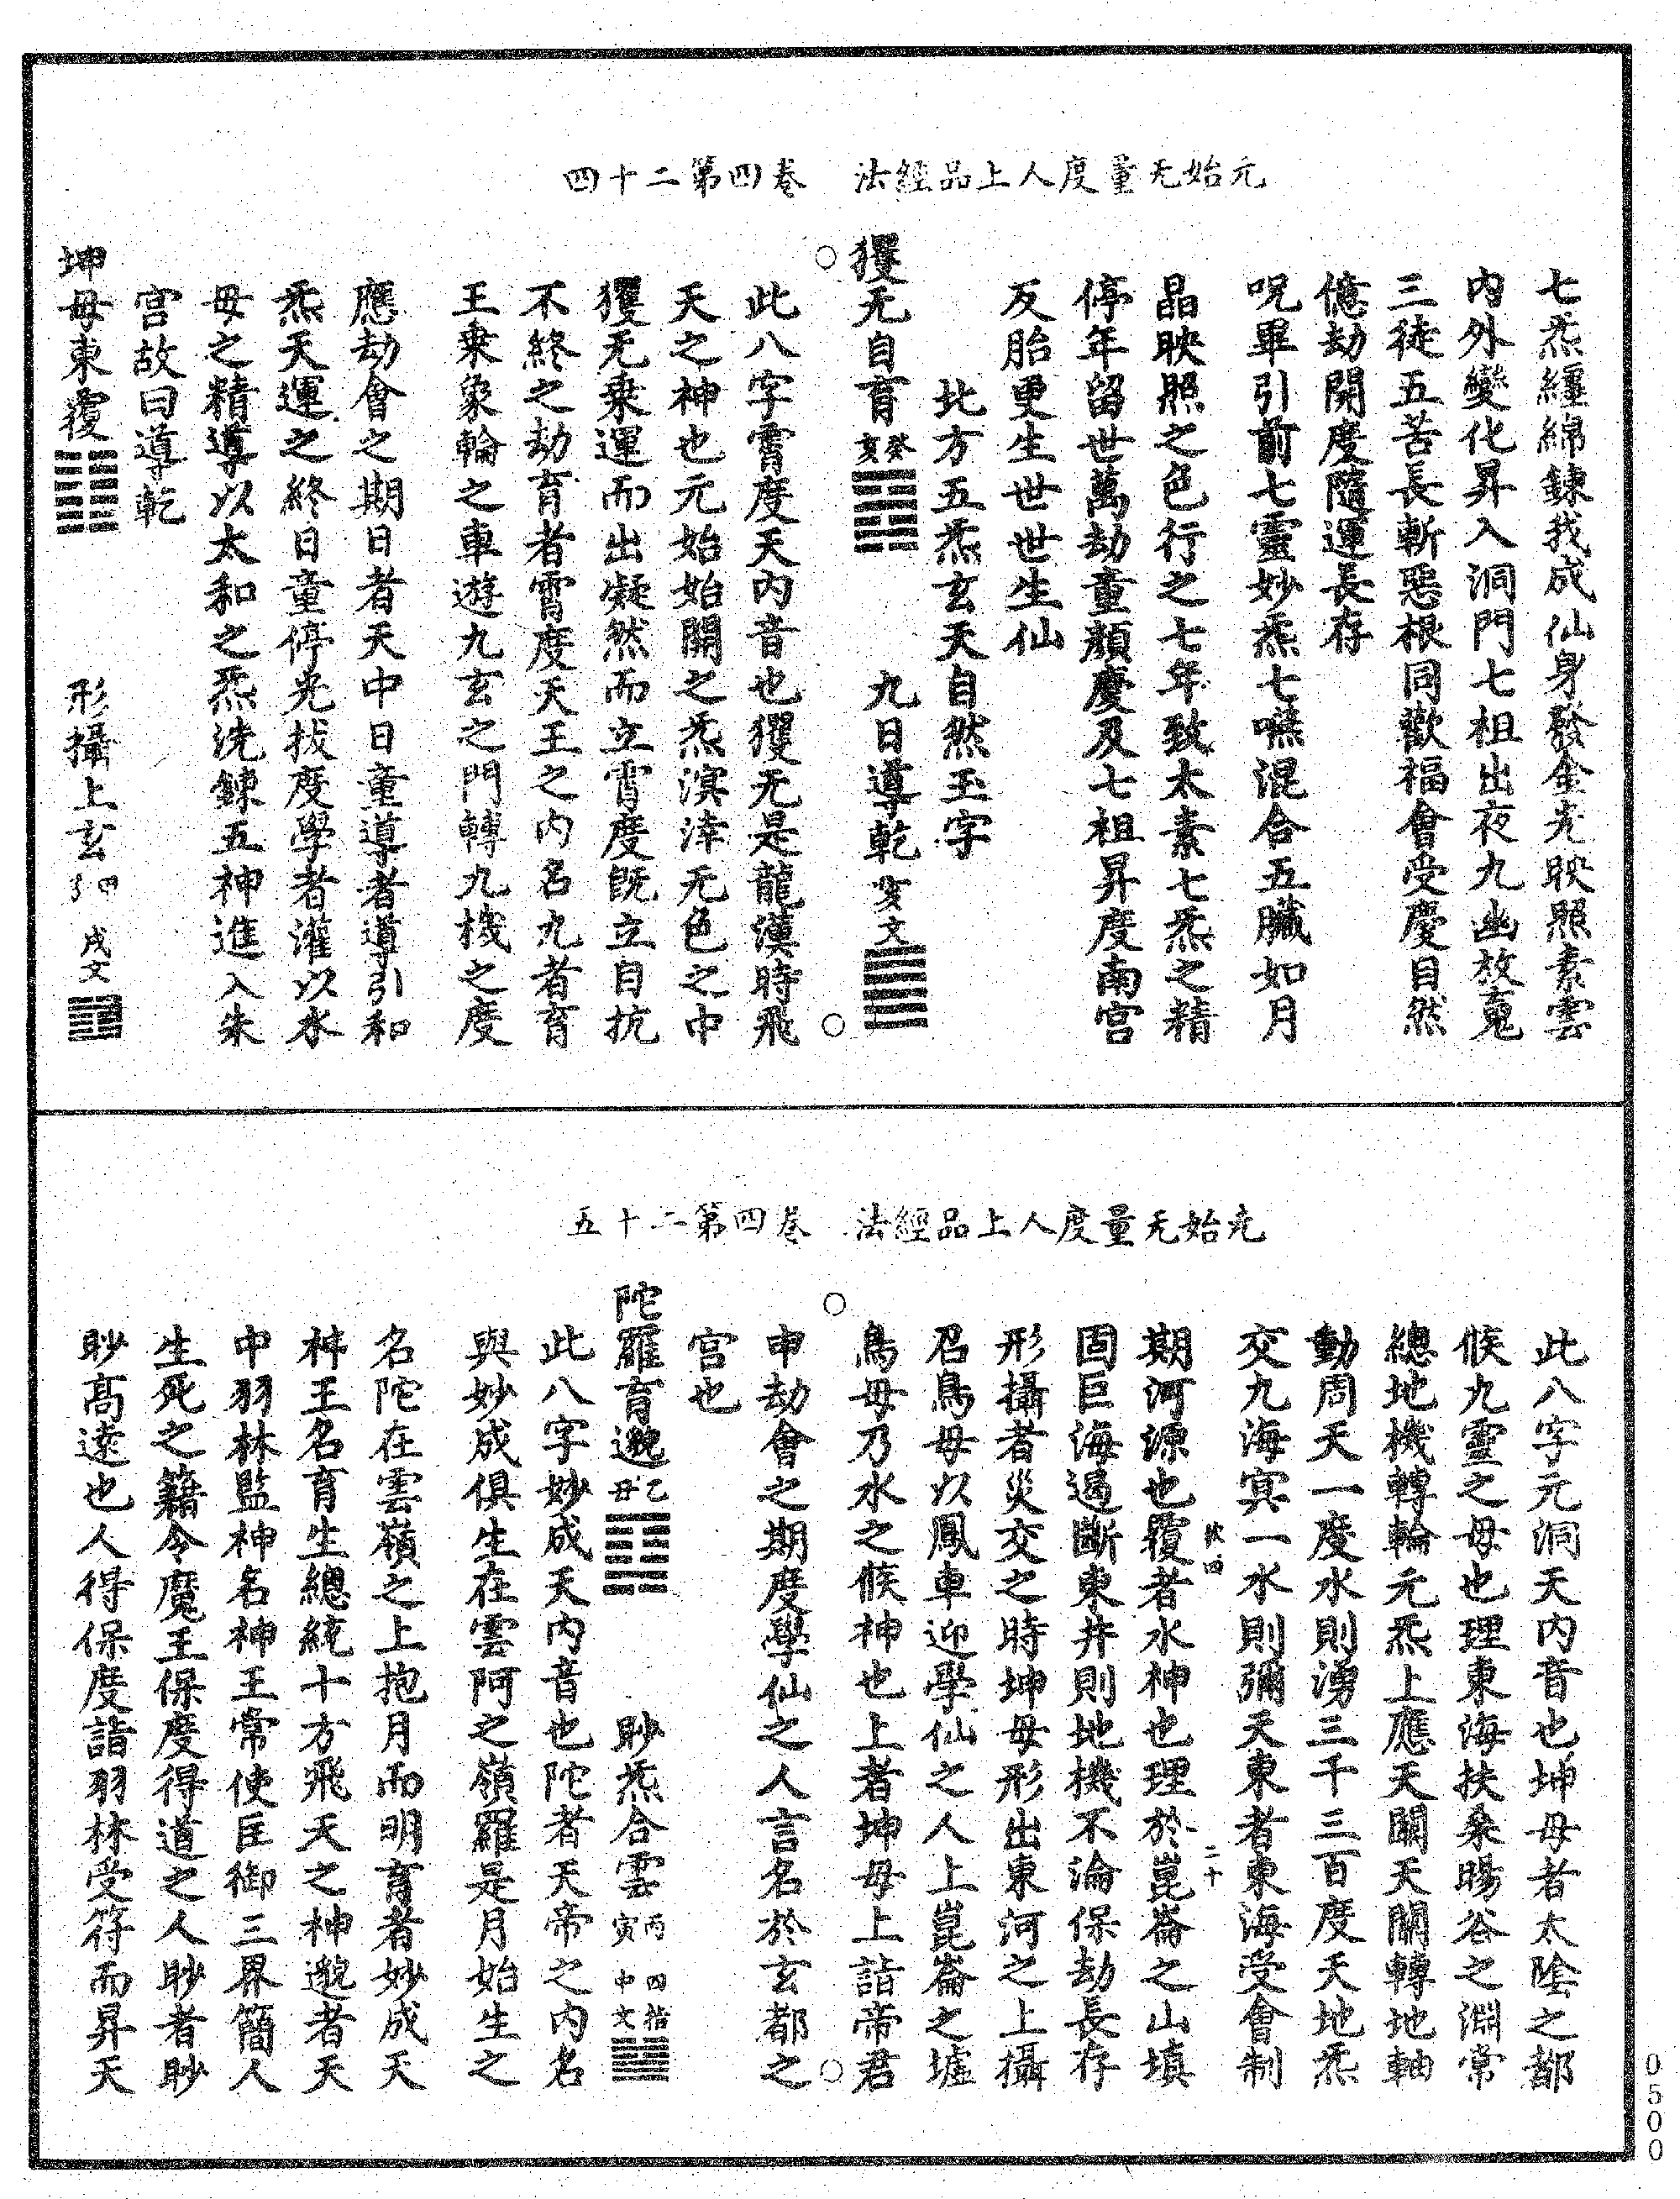 元始无量度人上品經法　卷四第二十四
七炁纏綿鍊我成仙身發金光映照素雲
内外變化昇入洞門七祖出夜九幽放䰟
三徒五苦長斬惡根同歡福會受慶自然
億劫開度隨運長存
呪畢引前七靈妙炁七嚥混合五臟如月
晶映照之色行之七年致太素七炁之精
停年留世萬劫童顔慶及七祖昇度南宫
反胎更生世世生仙
北方五炁玄天自然玉字
玃无自育 癸亥　九日導乾 亥文
此八字霄度天内音也玃无是龍漢時飛
天之神也元始始開之炁溟涬无色之中
玃无乗運而出凝然而立霄度既立自抗
不終之劫育者霄度天王之内名九者育
王乗象輪之車遊九玄之門轉九機之度
應劫會之期日者天中日童導者導引和
炁天運之終日童停光拔度學者灌以水
母之精導以太和之炁洗鍊五神進入朱
宫故曰導乾
坤母東覆　形攝上玄 戌文
元始无量度人上品經法　卷四第二十五
此八字元洞天内音也坤母者太陰之都
候九靈之母也理東海扶桒暘谷之淵常
總地機轉輪元炁上應天關天關轉地軸
動周天一度水則湧三千三百度天地炁
交九海㝠一水則彌天東者東海受會制
期河源也覆者水神也理於崑崙之山填
固巨海遏斷東井則地機不淪保劫長存
形攝者災交之時坤母形出東河之上攝
召鳥母以鳳車迎學仙之人上崑崙之墟
鳥母乃水之候神也上者坤母上詣帝君
申劫會之期度學仙之人言名於玄都之
宫也
陀羅育邈 乙丑　眇炁合雲 丙寅 中文
此八字妙成天内音也陀者天帝之内名
與妙成俱生在雲阿之嶺羅是月始生之
名陀在雲嶺之上抱月而明育者妙成天
神王名育生總統十方飛天之神邈者天
中羽林監神名神王常使匡御三界簡人
生死之籍令魔王保度得道之人眇者眇
眇髙逺也人得保度詣羽林受符而昇天
0500